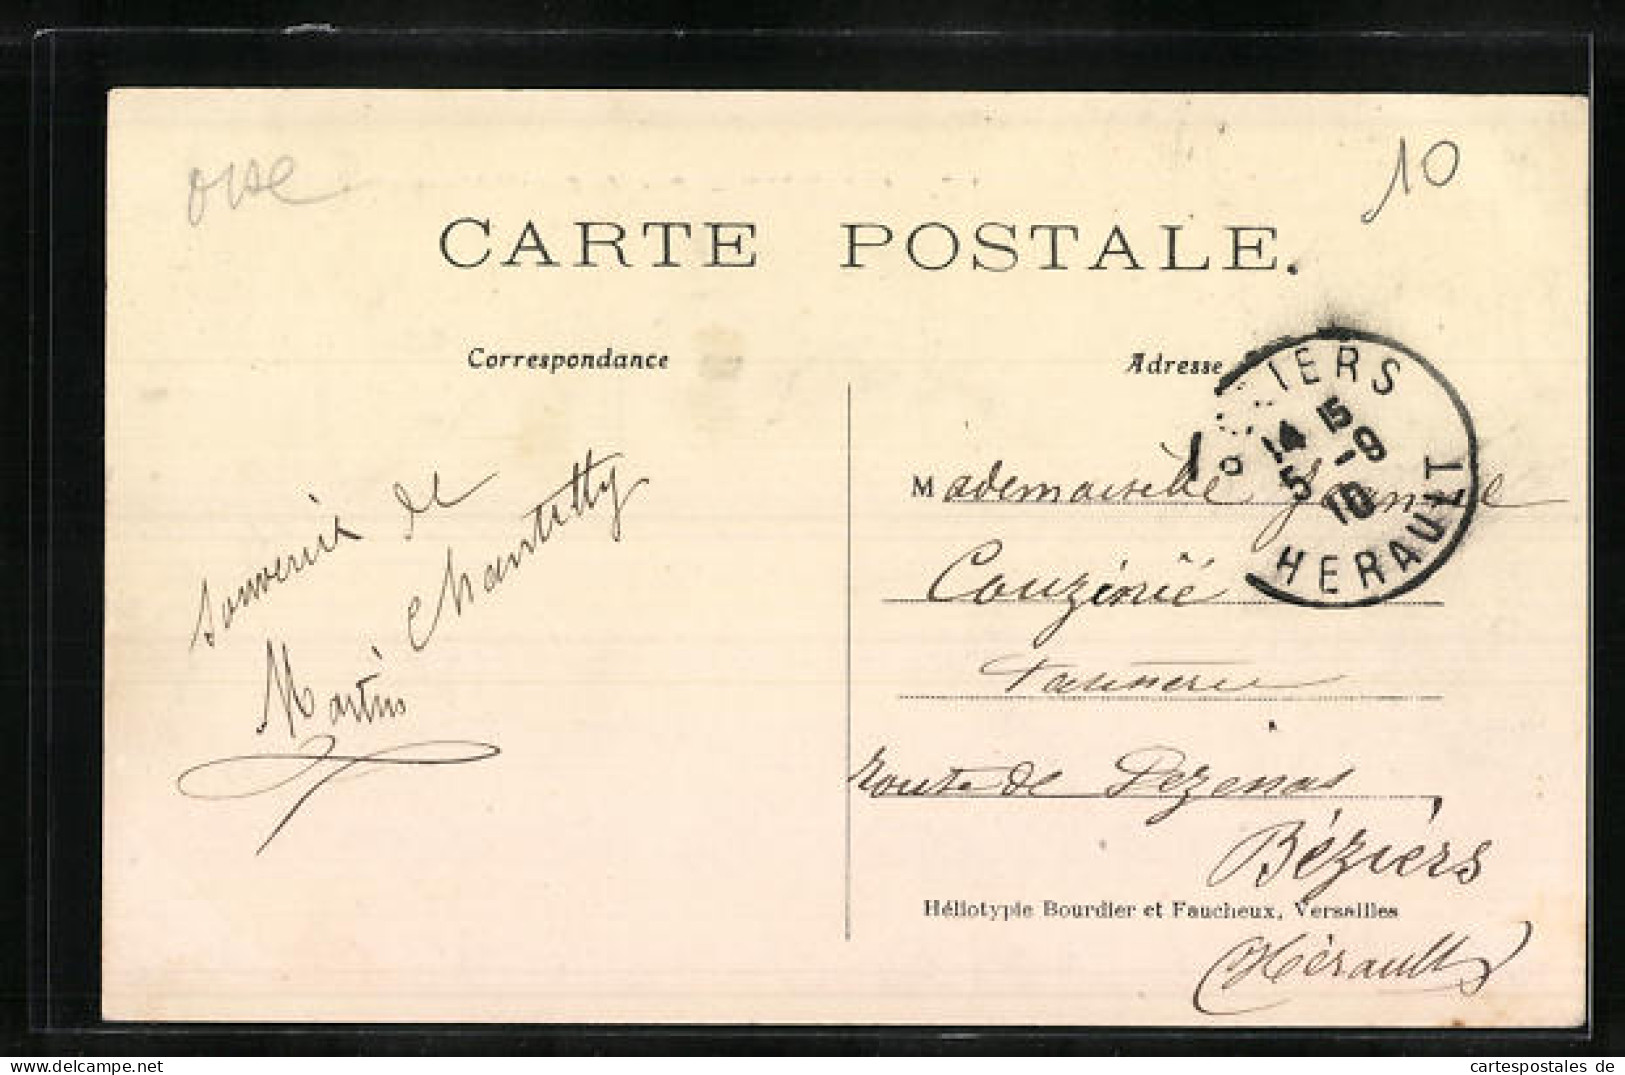 oise
10
CARTE POSTALE.
Correspondance
Adresse
souvenir de
Chantilly
Martin
IERS
14 15
5 -9
10
HERAULT
Mademoiselle Jeanne
Couzinié
tannerie
route de Pezenas
Béziers
Héliotypie Bourdier et Faucheux, Versailles
(Hérault)
cartespostales de